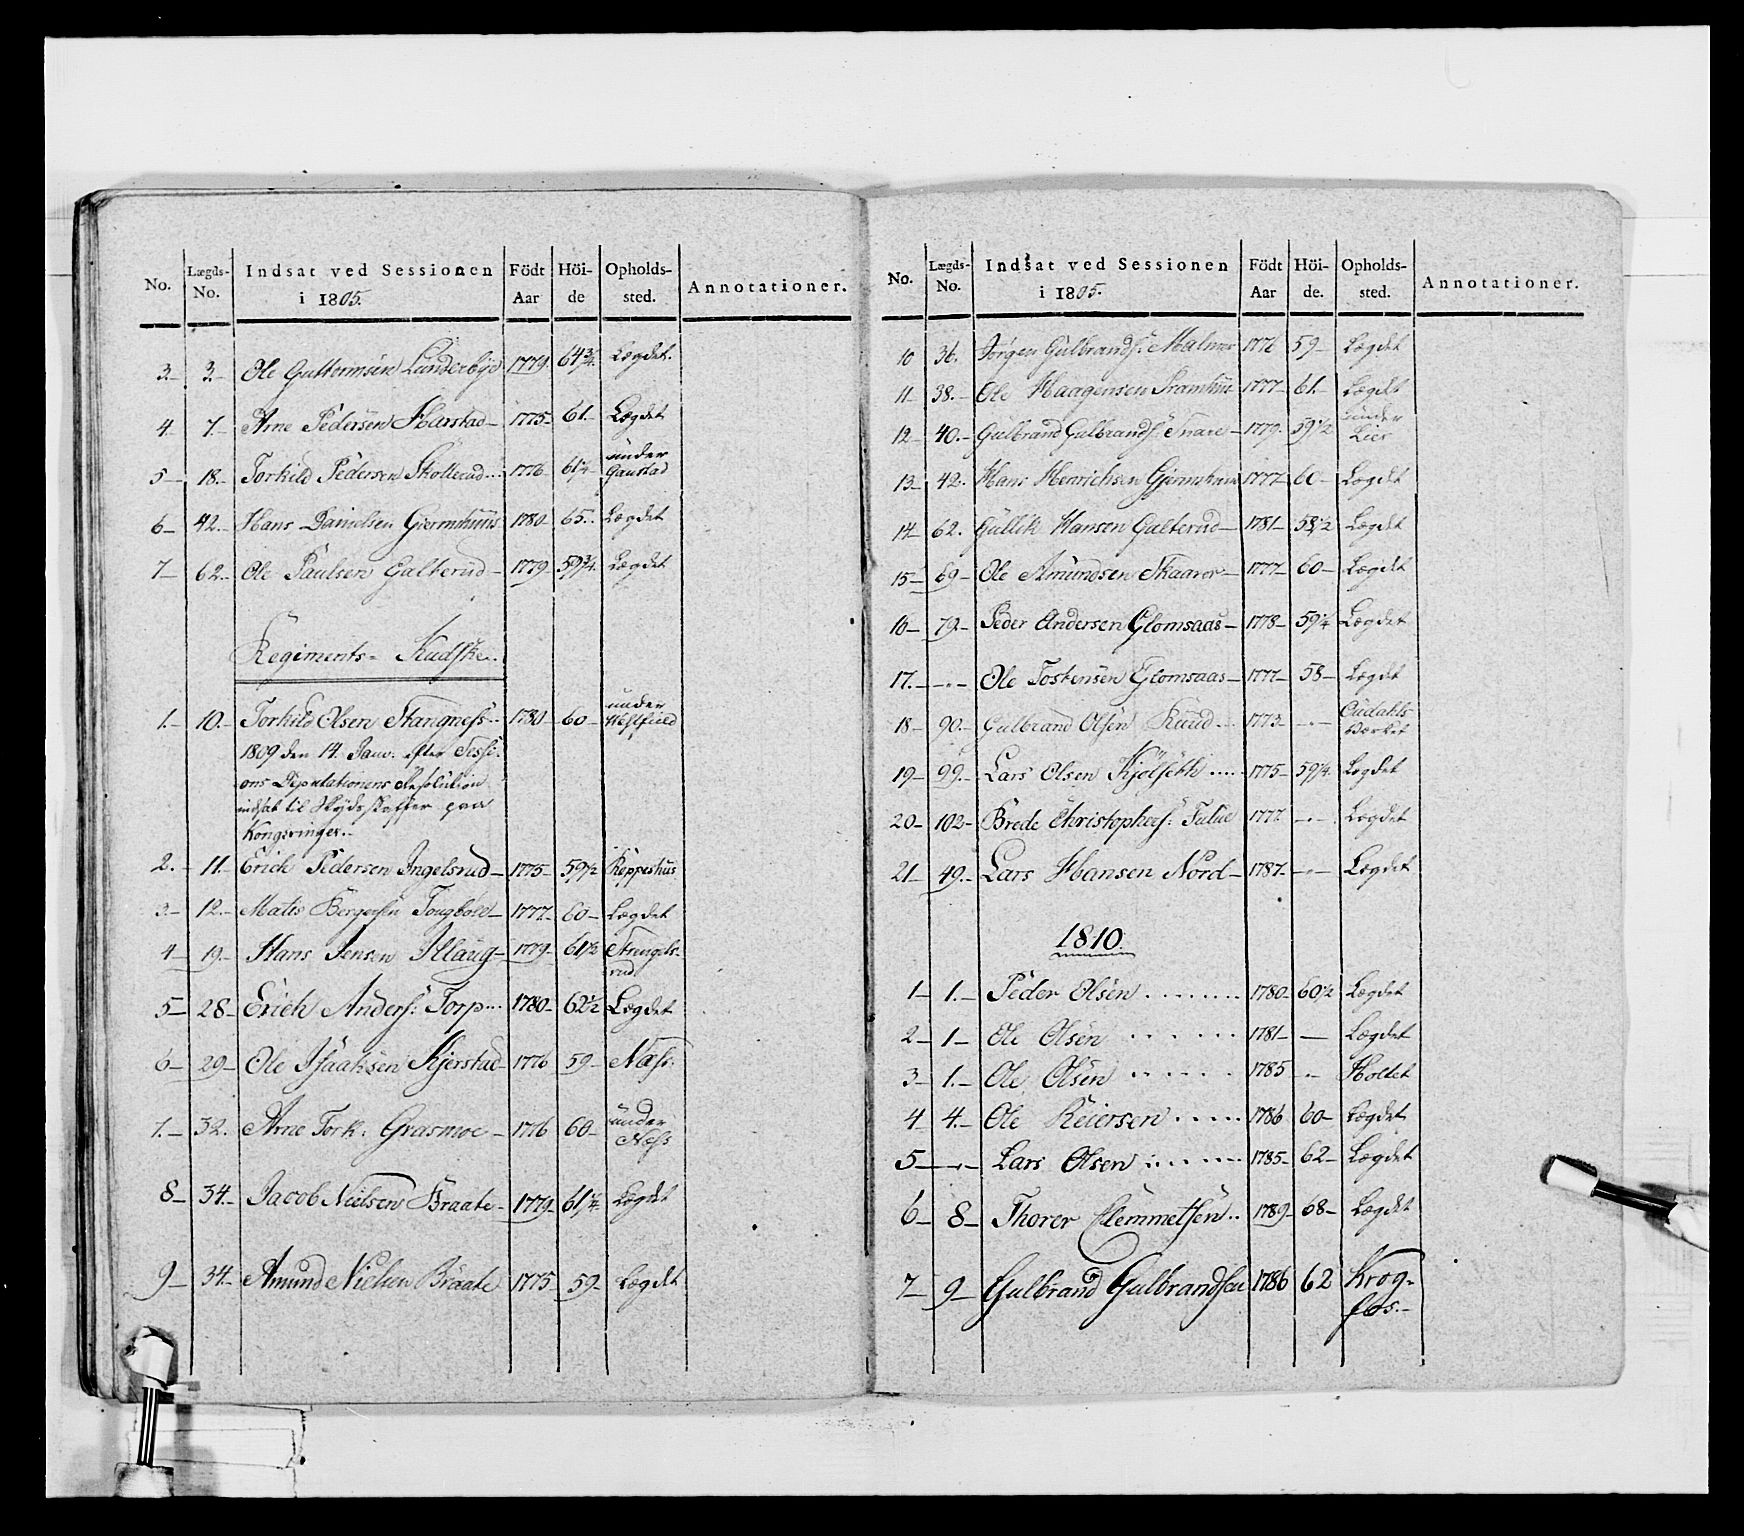 No. Lægds- Indsat ved Sessionen Födt Höi- Opholds- Annotationer.
No. i 1805. Aar de sted.
3.– 3.– Ole Guttormsen Lunderbye 1779. 64¾. Lægdet.
4.– 7.– Arne Pedersen Harstad– 1775– 61.– Lægdet
5– 18.– Torkild Pedersen Skotterud... 1776– 61¼– under
Gaustad
6– 42.– Hans Danielsen Giermshuus 1780– 65.. Lægdet
7– 62.– Ole Paulsen Galterud– 1779– 59¾. Lægdet
Regiments- Kudske..
1.– 10.– Torkild Olsen Stangness.. 1780– 60– under
Westfield
1809 den 14. Janv: efter Sessi:
ons Deputationens Resolution
indsat til Skydsskaffer paa
Kongsvinger..
2.– 11.– Erich Pedersen Ingelsrud– 1775– 59½ Keppeshus
3– 12.– Matis Bergersen Tougbøle– 1777– 60– Lægdet
4– 19.– Hans Jensen Illaug– 1779– 61½ Strengels-
rud
5– 28– Erich Anders: Torp... 1780– 62½ Lægdet
6– 29– Ole Isaaksen Kjerstad– 1776 59– Næss:
7.– 32. Arne Tork. Grasmoe– 1776 60– under
Næss
8– 34.– Jacob Nielsen Braate– 1779– 61¼– Lægdet
9– 34.– Amund Nielsen Braate 1775– 59– Lægdet
No. Lægds- Indsat ved Sessionen Födt Höi- Opholds- Annotationer.
No. i 1805. Aar de. sted.
10 36. Jörgen Gulbrands: Malmer 1776 59– Lægdet
11– 38.– Ole Haagensen 1777– 61. Lægdet
12– 40.– Gulbrand Gulbrands: Snare– 1779. 59½ under
Lier
13– 42. Hans Henrichsen Gjermshuus 1777– 60– Lægdet
14– 62. Gullik Hansen Galterud– 1781– 58½ Lægdet
15– 69– Ole Amundsen Skaarer– 1777– 60– Lægdet
16– 79.– Peder Andersen Glomsaas– 1778– 59¼ Lægdet
17.– –.– Ole Tostensen Glomsaas– 1777– 58– Lægdet
18– 90.– Gulbrand Olsen Ruud... 1773– –.– Oudahls
Værket
19– 99.– Lars Olsen Kjölseth..... 1775– 59¼. Lægdet
20– 102– Brede Christophers: 1777 –.– Lægdet
21– 49.– Lars Hansen Nord– 1787– –.– Lægdet
1810.
1– 1.– Peder Olsen........ 1780– 60½ Lægdet
2– 1– Ole Olsen...... 1781– — Lægdet
3– 1.– Ole Olsen...... 1785 –.– Holtet
4 4.– Ole Reiersen..... 1786 60– Lægdet
5– –.– Lars Olsen...... 1785– 62– Lægdet
6– 8– Thorer Clemmetsen.. 1789– 68– Lægdet
7– 9– Gulbrand Gulbrandsen 1786 62 Krog-
fos.–